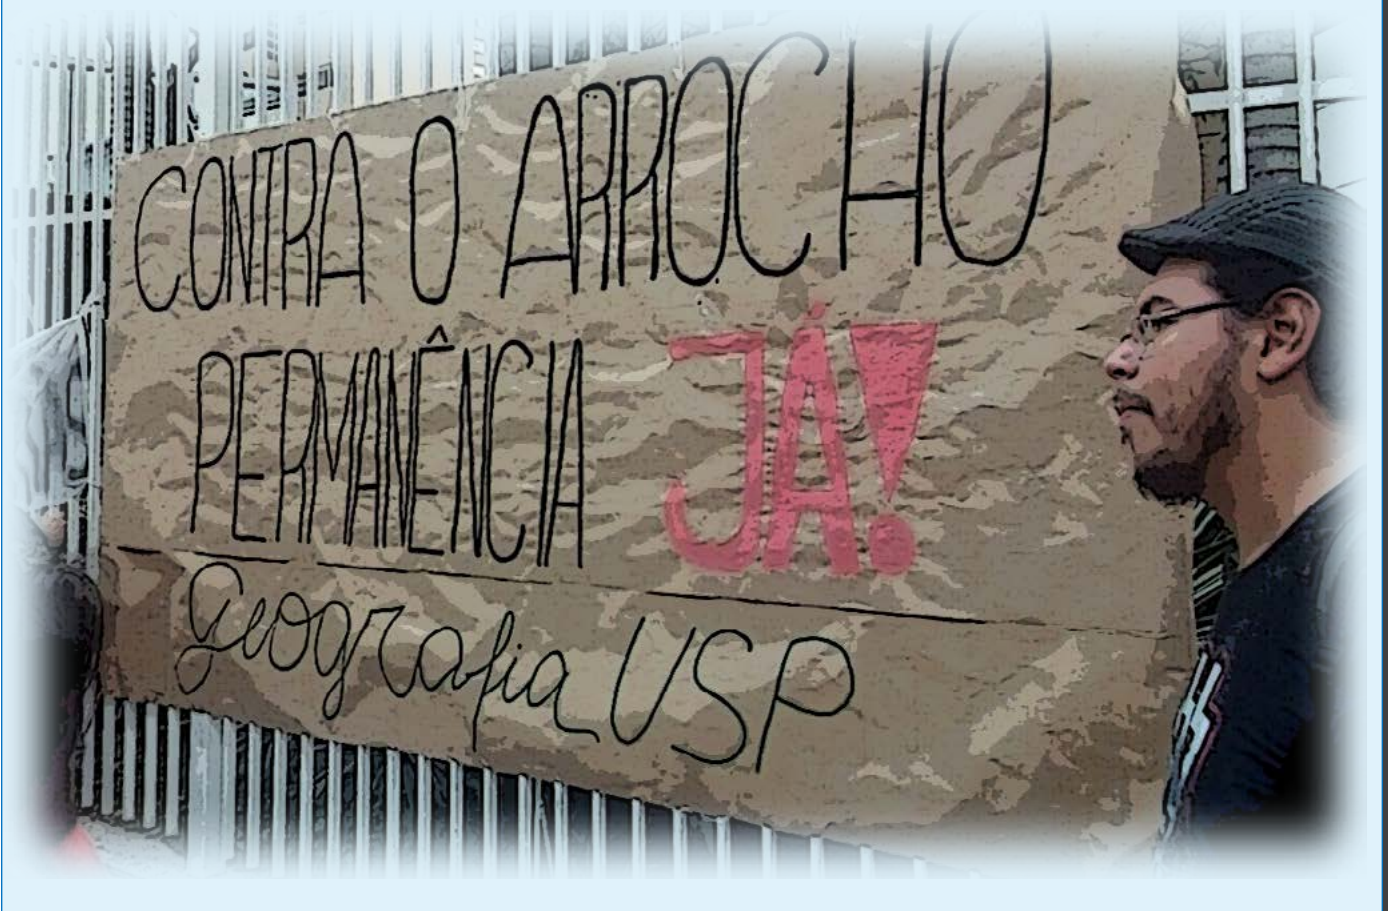 CONTRA O ARROCHO
PERMANÊNCIA JÁ!
Geografia USP